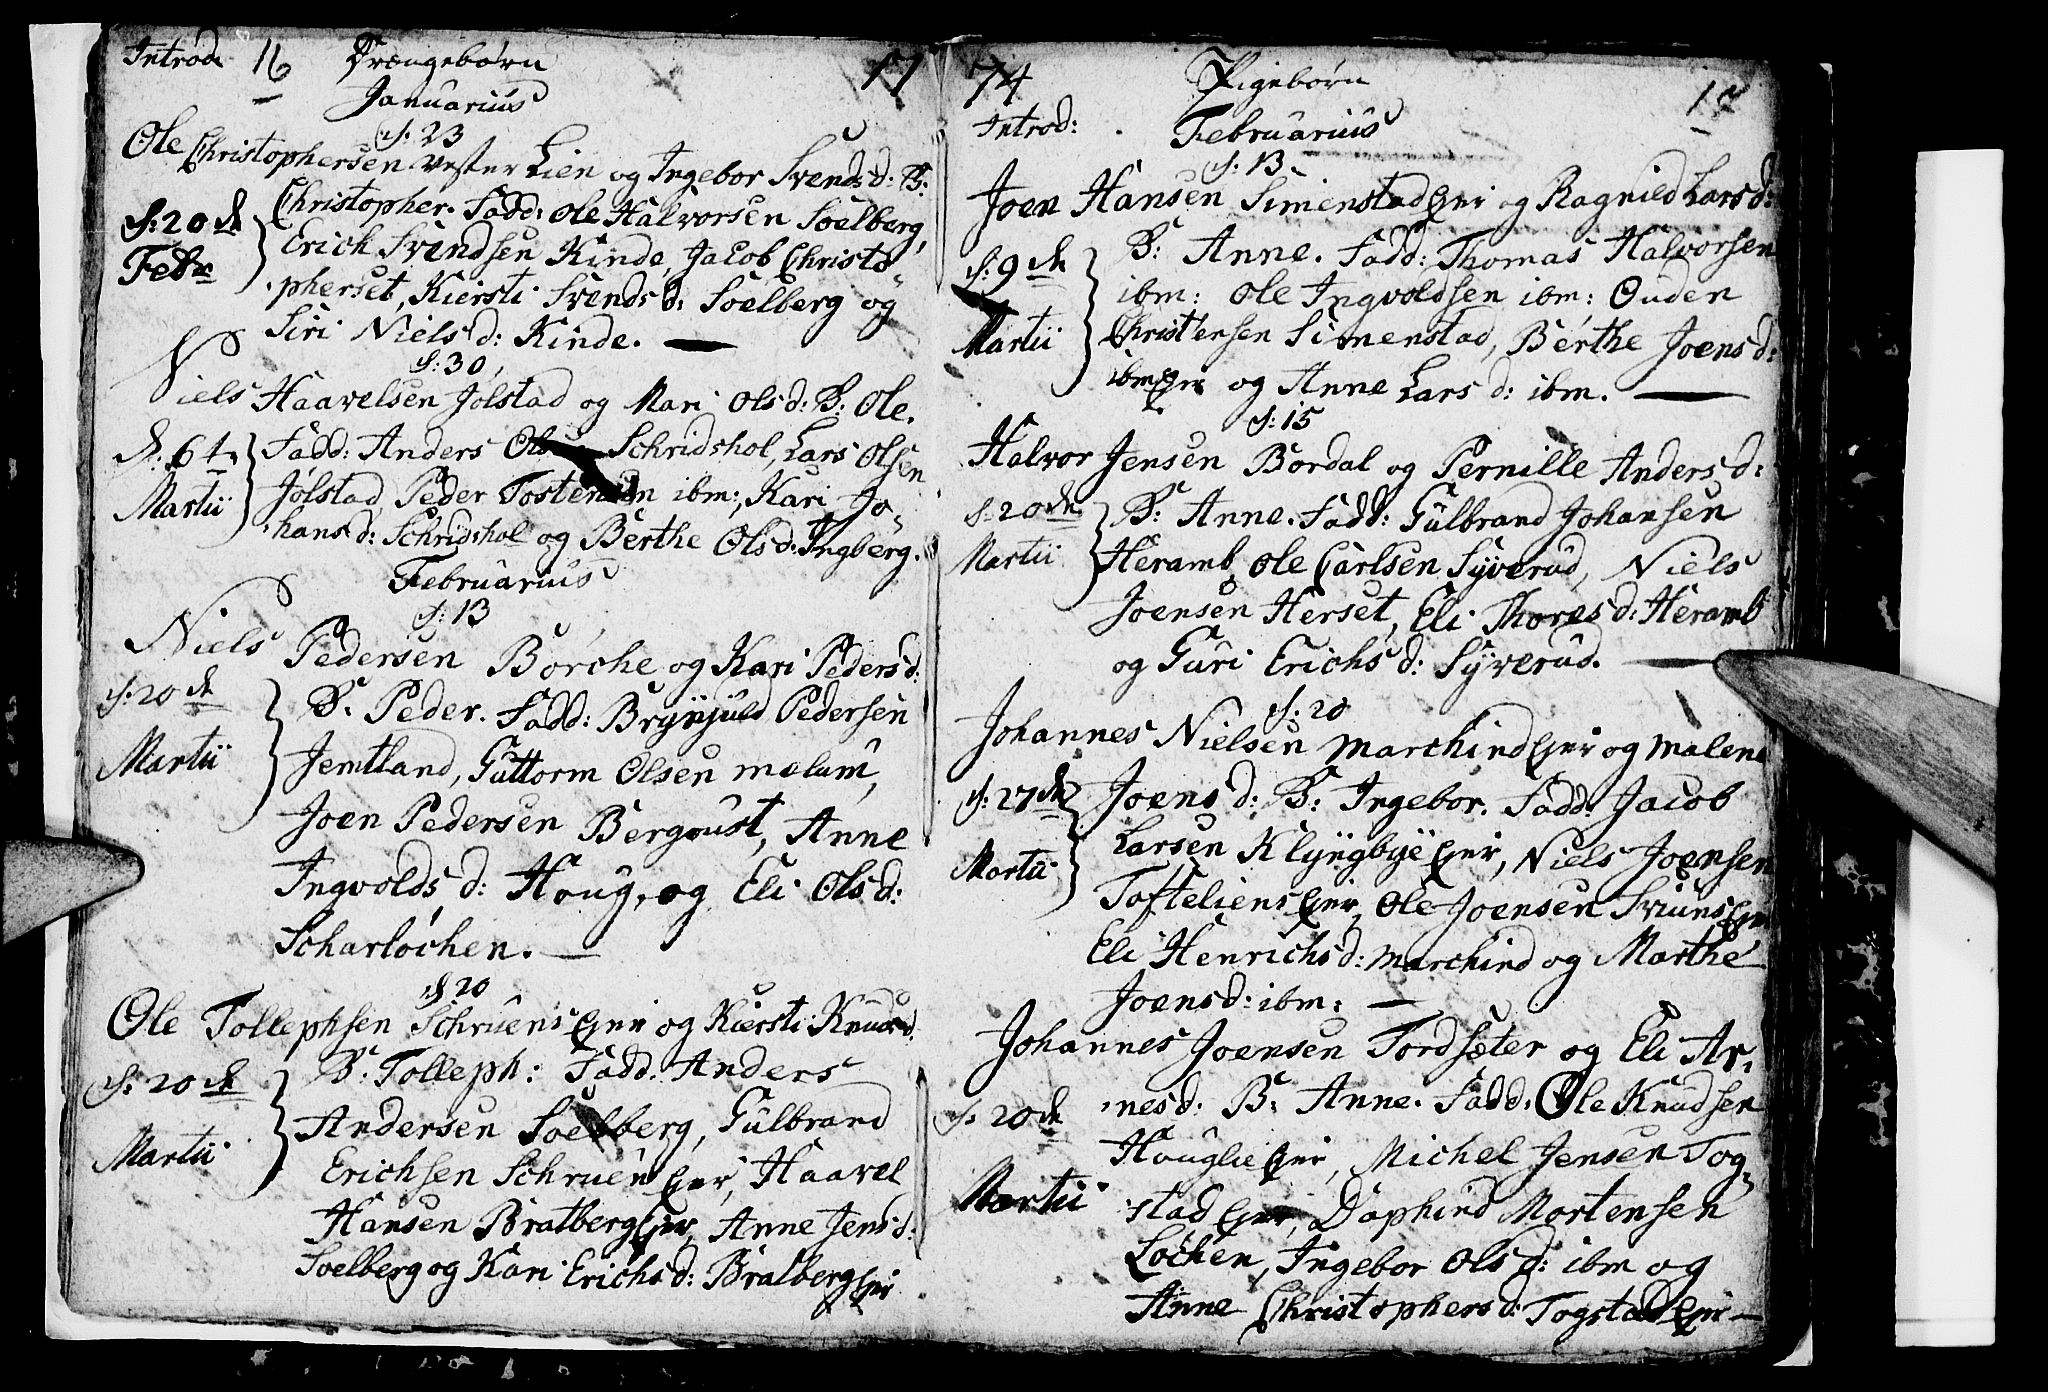 Introd. 16 Drængebørn 17
Januarius
d. 23
Ole Christophersen vester Lien og Ingebor Svends d: B:
Christopher. Fadd: Ole Halvorsen Soelberg,
d: 20 de Erich Svendsen Kinde, Jacob Christo-
Febr pherset, Kiersti Svends d: Soelberg og
Siri Niels d: Kinde. —
d: 30.
Niels Haavelsen Jolstad og Mari Ols d: B: Ole.
d: 6 t Fadd: Anders Schridshol, Lars Olsen
Martii Jolstad, Peder Tostensen ibm:, Kari Jo-
hans d: Schridshol og Berthe Ols d: Ingberg.
Februarius
d: 13
Niels Pedersen Borche og Kari Peders d:
d: 20 de B. Peder. Fadd: Brynjuld Pedersen
Martii Jemtland, Guttorm Olsen mælum,
Joen Pedersen Bergoust, Anne
Ingvolds d: Houg, og Eli Ols d:
Scharlochen. —
d 20
Ole Tollephsen Schruens Ejer og Kiersti Knuds d.
d: 20 de B. Tolleph: Fadd. Anders
Andersen Soelberg, Gulbrand
Martii Erichsen Schruen Ejer, Haavel
Hansen Bratberg Ejer, Anne Jens d:
Soelberg og Kari Erichs d: Bratberg Ejer
74 Pigebørn 17
Introd: Februarius
d: 13.
Joen Hansen Simenstad Ejer og Ragnild Lars d:
d: 9 de B: Anne. Fadd: Thomas Halvorsen
ibm: Ole Ingvoldsen ibm: Ouden
Martii Christensen Simenstad, Berthe Joens d:
ibm Ejer og Anne Lars d: ibm. —
d: 15
Halvor Jensen Bordal og Pernille Anders d:
d: 20 de B: Anne. Fadd: Gulbrand Johansen
Martii Heramb, Ole Carlsen Syverud, Niels
Joensen Herset, Eli Thores d: Heramb
og Guri Erichs d: Syverud. —
d: 20
Johannes Nielsen Marchind Ejer og Malene
d: 27 de Joens d: B: Ingebor. Fadd: Jacob
Larsen Klyngbye Ejer, Niels Joensen
Martii Tofteliens Ejer, Ole Joensen Sviuns Ejer
Eli Henrichs d: Marchind og Marthe
Joens d: ibm: —
Johannes Joensen Tordsæter og Eli Ar-
d: 20 de nes d: B: Anne. Fadd: Ole Knudsen
Houglie Ejer, Michel Jensen Tog-
Martii stad Ejer, Daphind Mortensen
Lochen, Ingebor Ols d: ibm og
Anne Christophers d: Togstad Ejer —